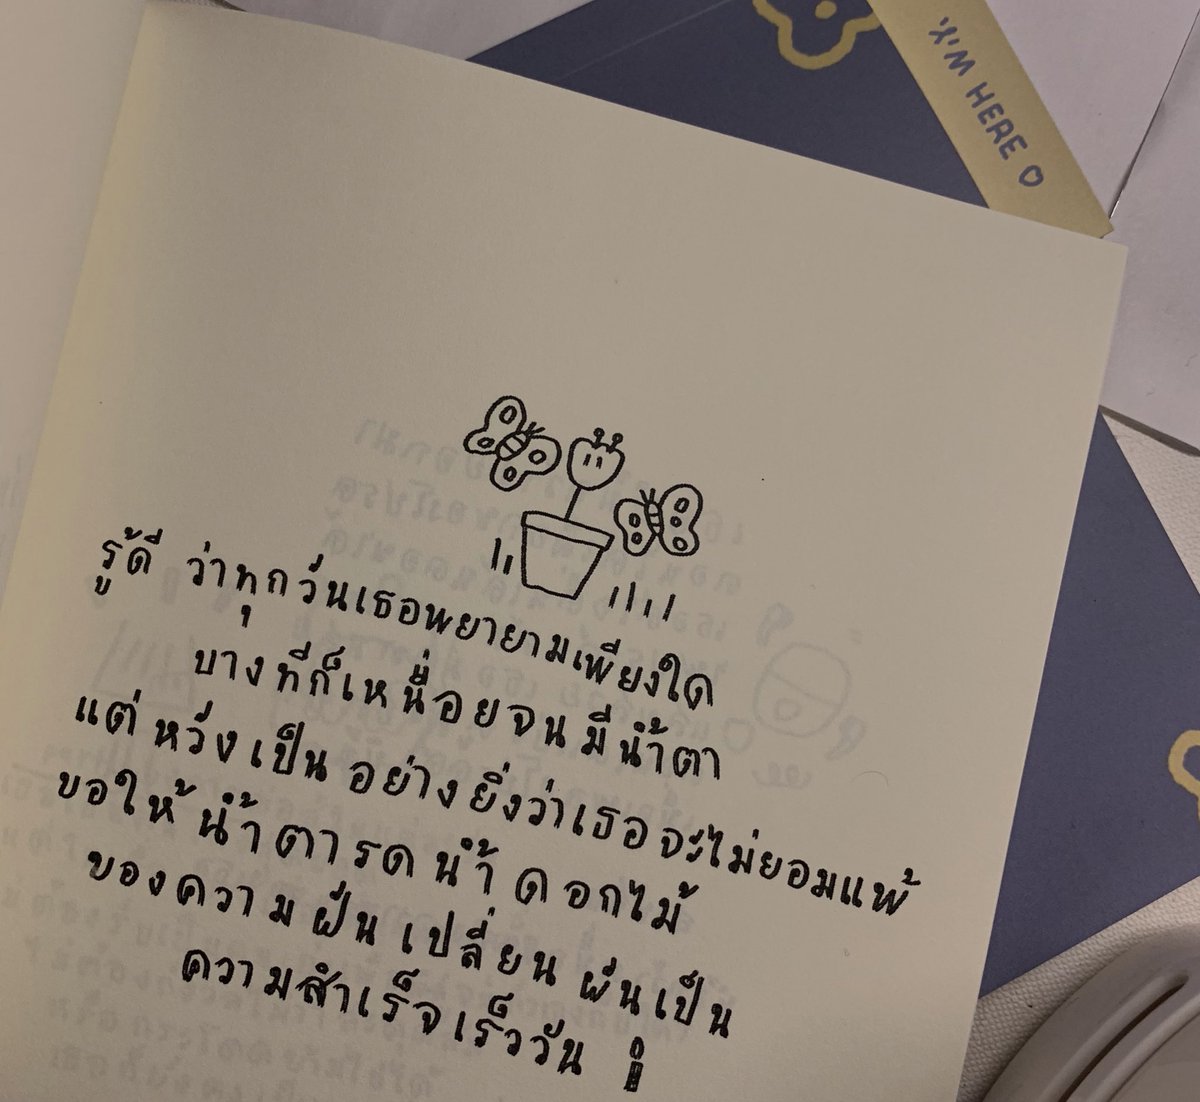 I'M HERE
รู้ดี ว่าทุกวันเธอพยายามเพียงใด
บางทีก็เหนื่อยจนมีน้ำตา
แต่หวังเป็นอย่างยิ่งว่าเธอจะไม่ยอมแพ้
ขอให้น้ำตารดน้ำดอกไม้
ของความฝัน เปลี่ยนผันเป็น
ความสำเร็จเร็ววัน